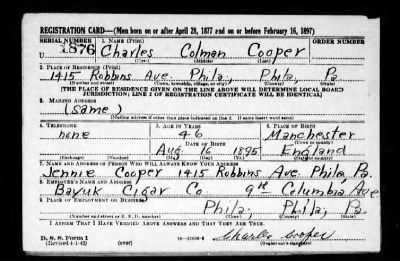 REGISTRATION CARD—(Men born on or after April 28, 1877 and on or before February 16, 1897)
SERIAL NUMBER 1. NAME (Print) ORDER NUMBER
U 1876 Charles Colman Cooper
(First) (Middle) (Last)
2. PLACE OF RESIDENCE (Print)
1415 Robbins Ave. Phila, Phila, Pa.
(Number and street) (Town, township, village, or city) (County) (State)
[THE PLACE OF RESIDENCE GIVEN ON THE LINE ABOVE WILL DETERMINE LOCAL BOARD
JURISDICTION; LINE 2 OF REGISTRATION CERTIFICATE WILL BE IDENTICAL]
3. MAILING ADDRESS
(same)
[Mailing address if other than place indicated on line 2. If same insert word same]
4. TELEPHONE 5. AGE IN YEARS 6. PLACE OF BIRTH
none 46 Manchester
DATE OF BIRTH (Town or county)
Aug 16 1895 England
(Exchange) (Number) (Mo.) (Day) (Yr.) (State or country)
7. NAME AND ADDRESS OF PERSON WHO WILL ALWAYS KNOW YOUR ADDRESS
Jennie Cooper 1415 Robbins Ave Phila, Pa.
8. EMPLOYER'S NAME AND ADDRESS
Bayuk Cigar Co 9th Columbia Ave
9. PLACE OF EMPLOYMENT OR BUSINESS
Phila, Phila, Pa.
(Number and street or R. F. D. number) (Town) (County) (State)
I AFFIRM THAT I HAVE VERIFIED ABOVE ANSWERS AND THAT THEY ARE TRUE.
D. S. S. Form 1
(Revised 4-1-42) (over) Charles Cooper
(Registrant's signature)